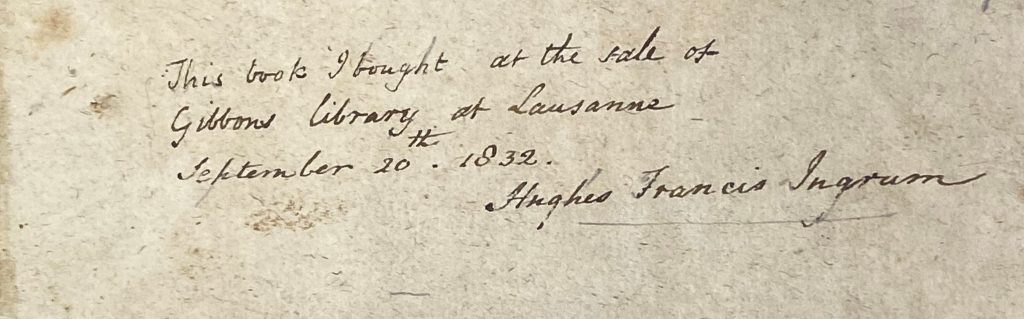 This book I bought at the sale of
Gibbons library at Lausanne
September 20th. 1832.
Hughes Francis Ingrum